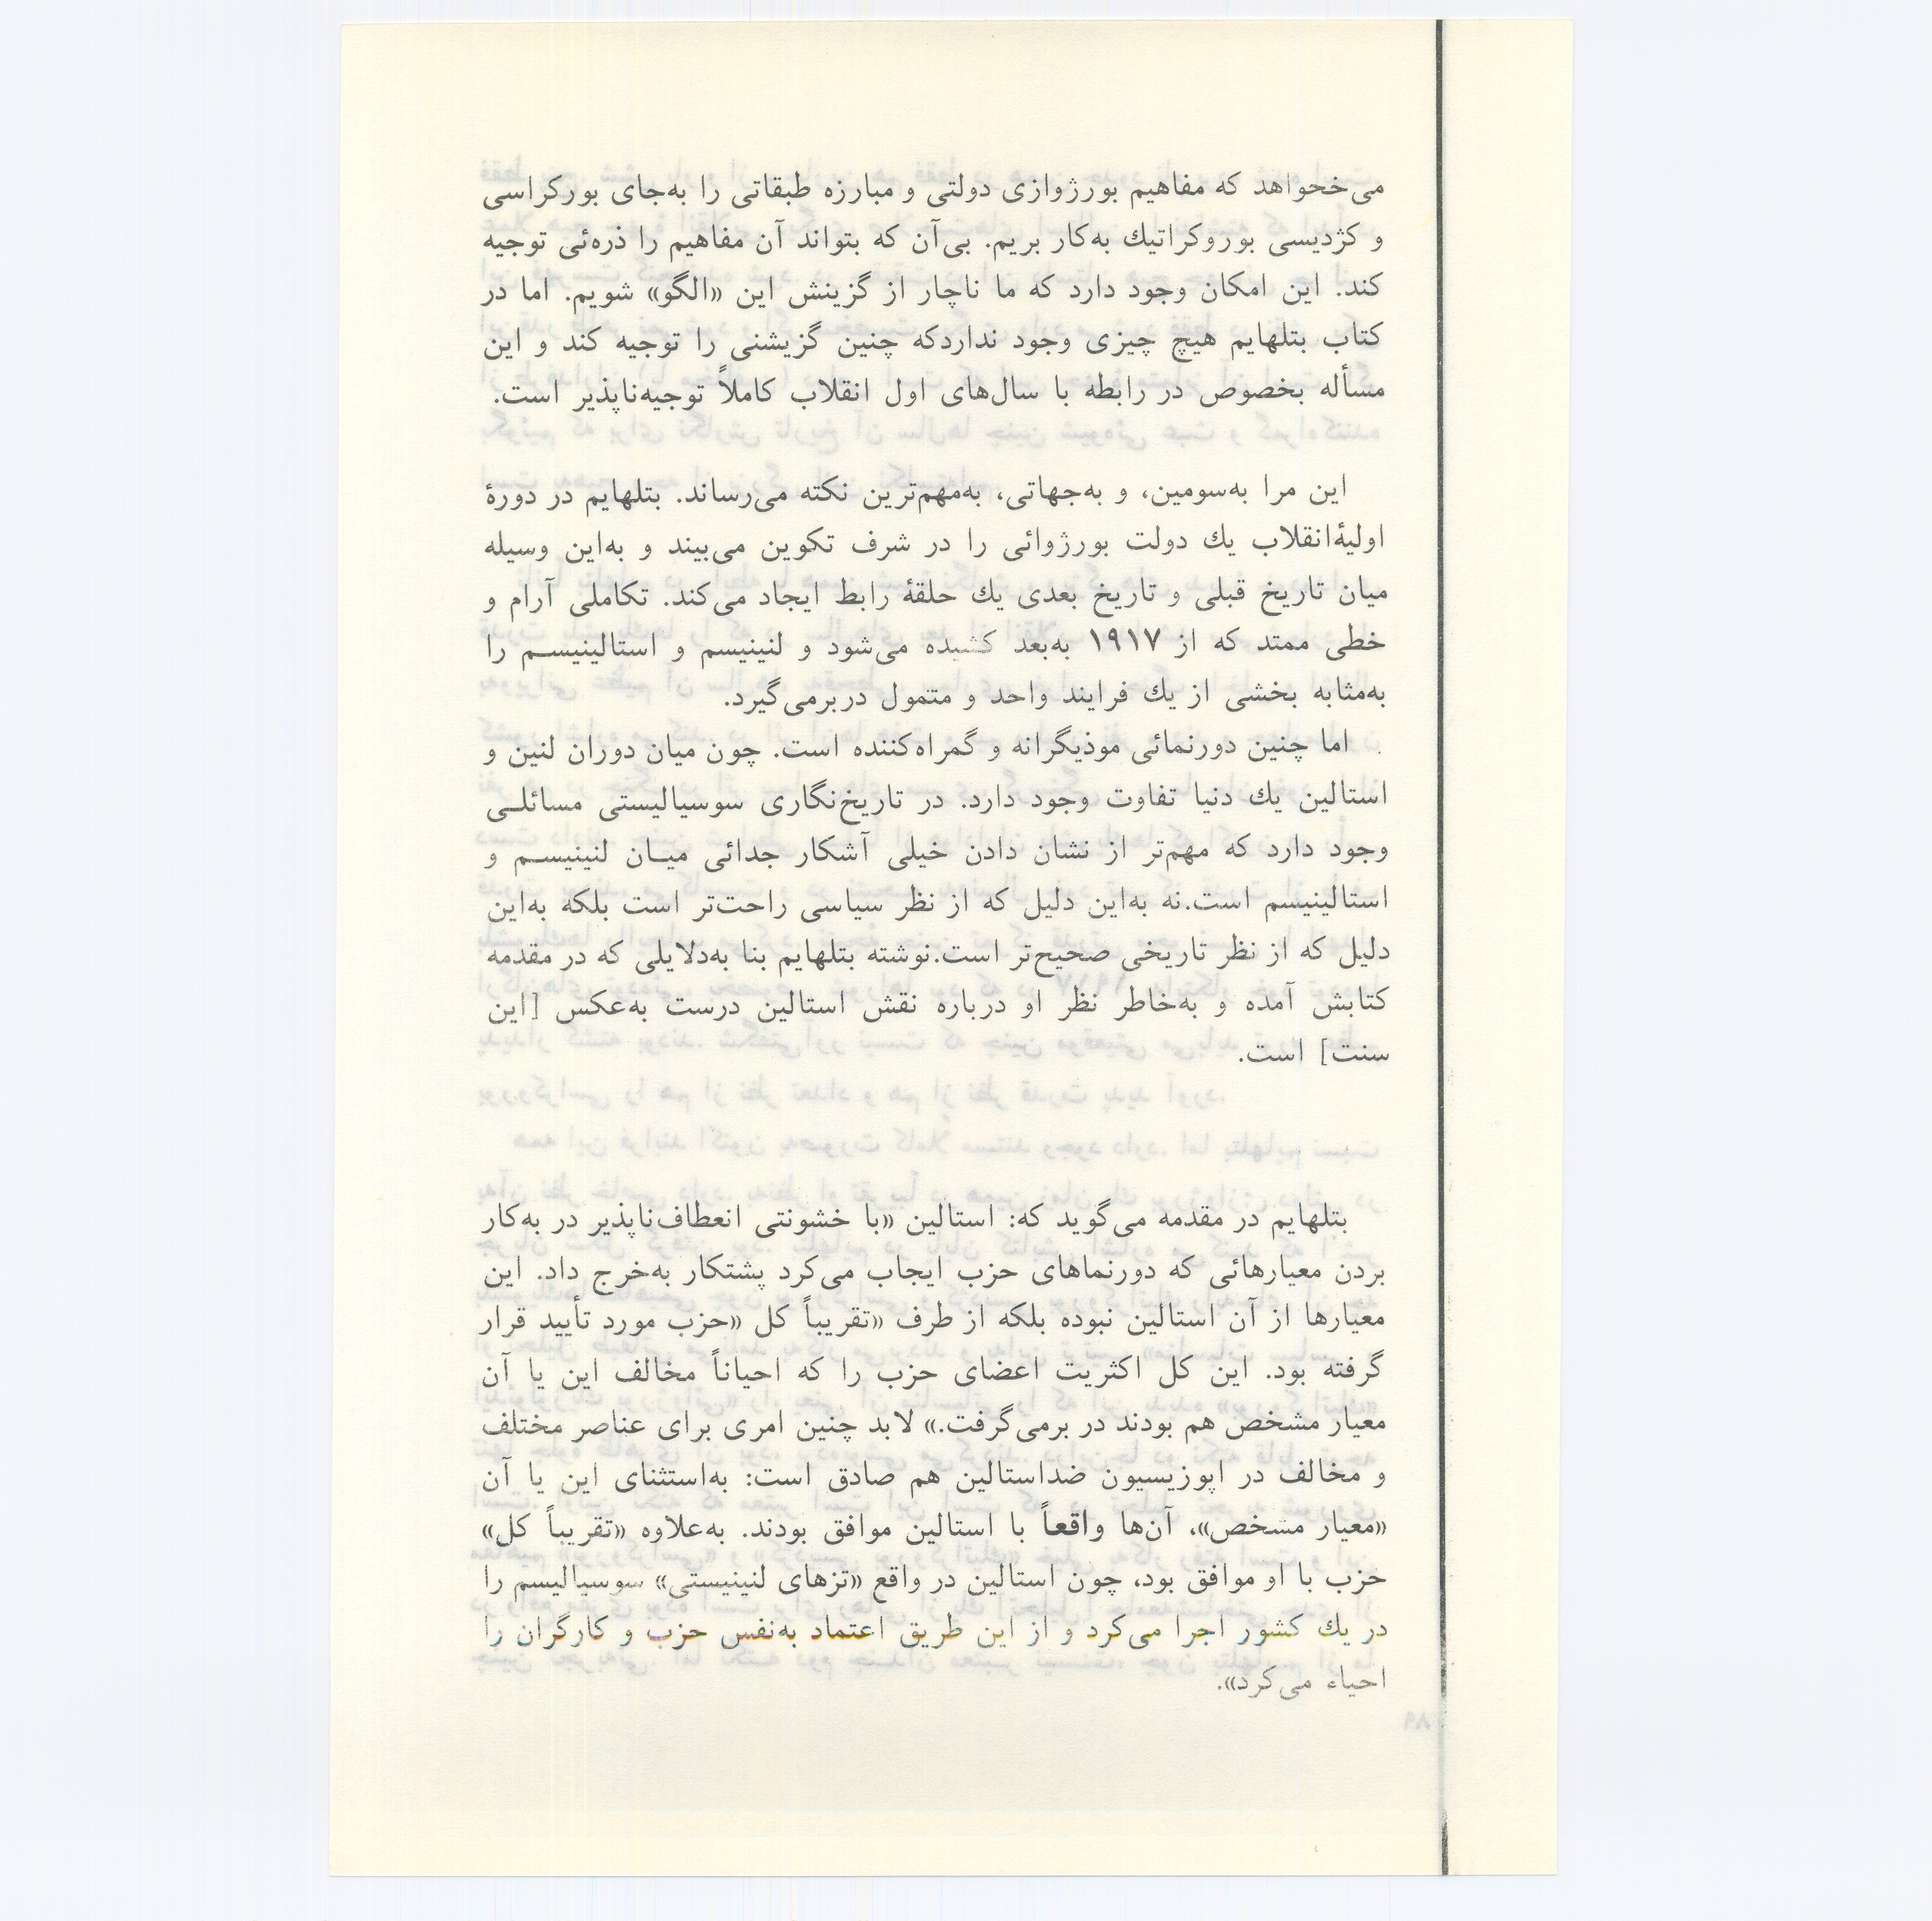 می‌خحواهد که مفاهیم بورژوازی دولتی و مبارزه طبقاتی را به‌جای بورکراسی
و کژدیسی بوروکراتیك به‌کار بریم. بی‌آن که بتواند آن مفاهیم را ذره‌ئی توجیه
کند. این امکان وجود دارد که ما ناچار از گزینش این «الگو» شویم. اما در
کتاب بتلهایم هیچ چیزی وجود نداردکه چنین گزیشنی را توجیه کند و این
مسأله بخصوص در رابطه با سال‌های اول انقلاب کاملاً توجیه‌ناپذیر است.
این مرا به‌سومین، و به‌جهاتی، به‌مهم‌ترین نکته می‌رساند. بتلهایم در دورهٔ
اولیهٔ‌انقلاب یك دولت بورژوائی را در شرف تکوین می‌بیند و به‌این وسیله
میان تاریخ قبلی و تاریخ بعدی یك حلقهٔ رابط ایجاد می‌کند. تکاملی آرام و
خطی ممتد که از ۱۹۱۷ به‌بعد کشیده می‌شود و لنینیسم و استالینیسم را
به‌مثابه بخشی از یك فرایند واحد و متمول دربرمی‌گیرد.
اما چنین دورنمائی موذیگرانه و گمراه‌کننده است. چون میان دوران لنین و
استالین یك دنیا تفاوت وجود دارد. در تاریخ‌نگاری سوسیالیستی مسائلی
وجود دارد که مهم‌تر از نشان دادن خیلی آشکار جدائی میان لنینیسم و
استالینیسم است.نه به‌این دلیل که از نظر سیاسی راحت‌تر است بلکه به‌این
دلیل که از نظر تاریخی صحیح‌تر است.نوشته بتلهایم بنا به‌دلایلی که در مقدمه
کتابش آمده و به‌خاطر نظر او درباره نقش استالین درست به‌عکس [این
سنت] است.
بتلهایم در مقدمه می‌گوید که: استالین «با خشونتی انعطاف‌ناپذیر در به‌کار
بردن معیارهائی که دورنماهای حزب ایجاب می‌کرد پشتکار به‌خرج داد. این
معیارها از آن استالین نبوده بلکه از طرف «تقریباً کل «حزب مورد تأیید قرار
گرفته بود. این کل اکثریت اعضای حزب را که احیاناً مخالف این یا آن
معیار مشخص هم بودند در برمی‌گرفت.» لابد چنین امری برای عناصر مختلف
و مخالف در اپوزیسیون ضداستالین هم صادق است: به‌استثنای این یا آن
«معیار مشخص»، آن‌ها واقعاً با استالین موافق بودند. به‌علاوه «تقریباً کل»
حزب با او موافق بود، چون استالین در واقع «تزهای لنینیستی» سوسیالیسم را
در یك کشور اجرا می‌کرد و از این طریق اعتماد به‌نفس حزب و کارگران را
احیاء می‌کرد».